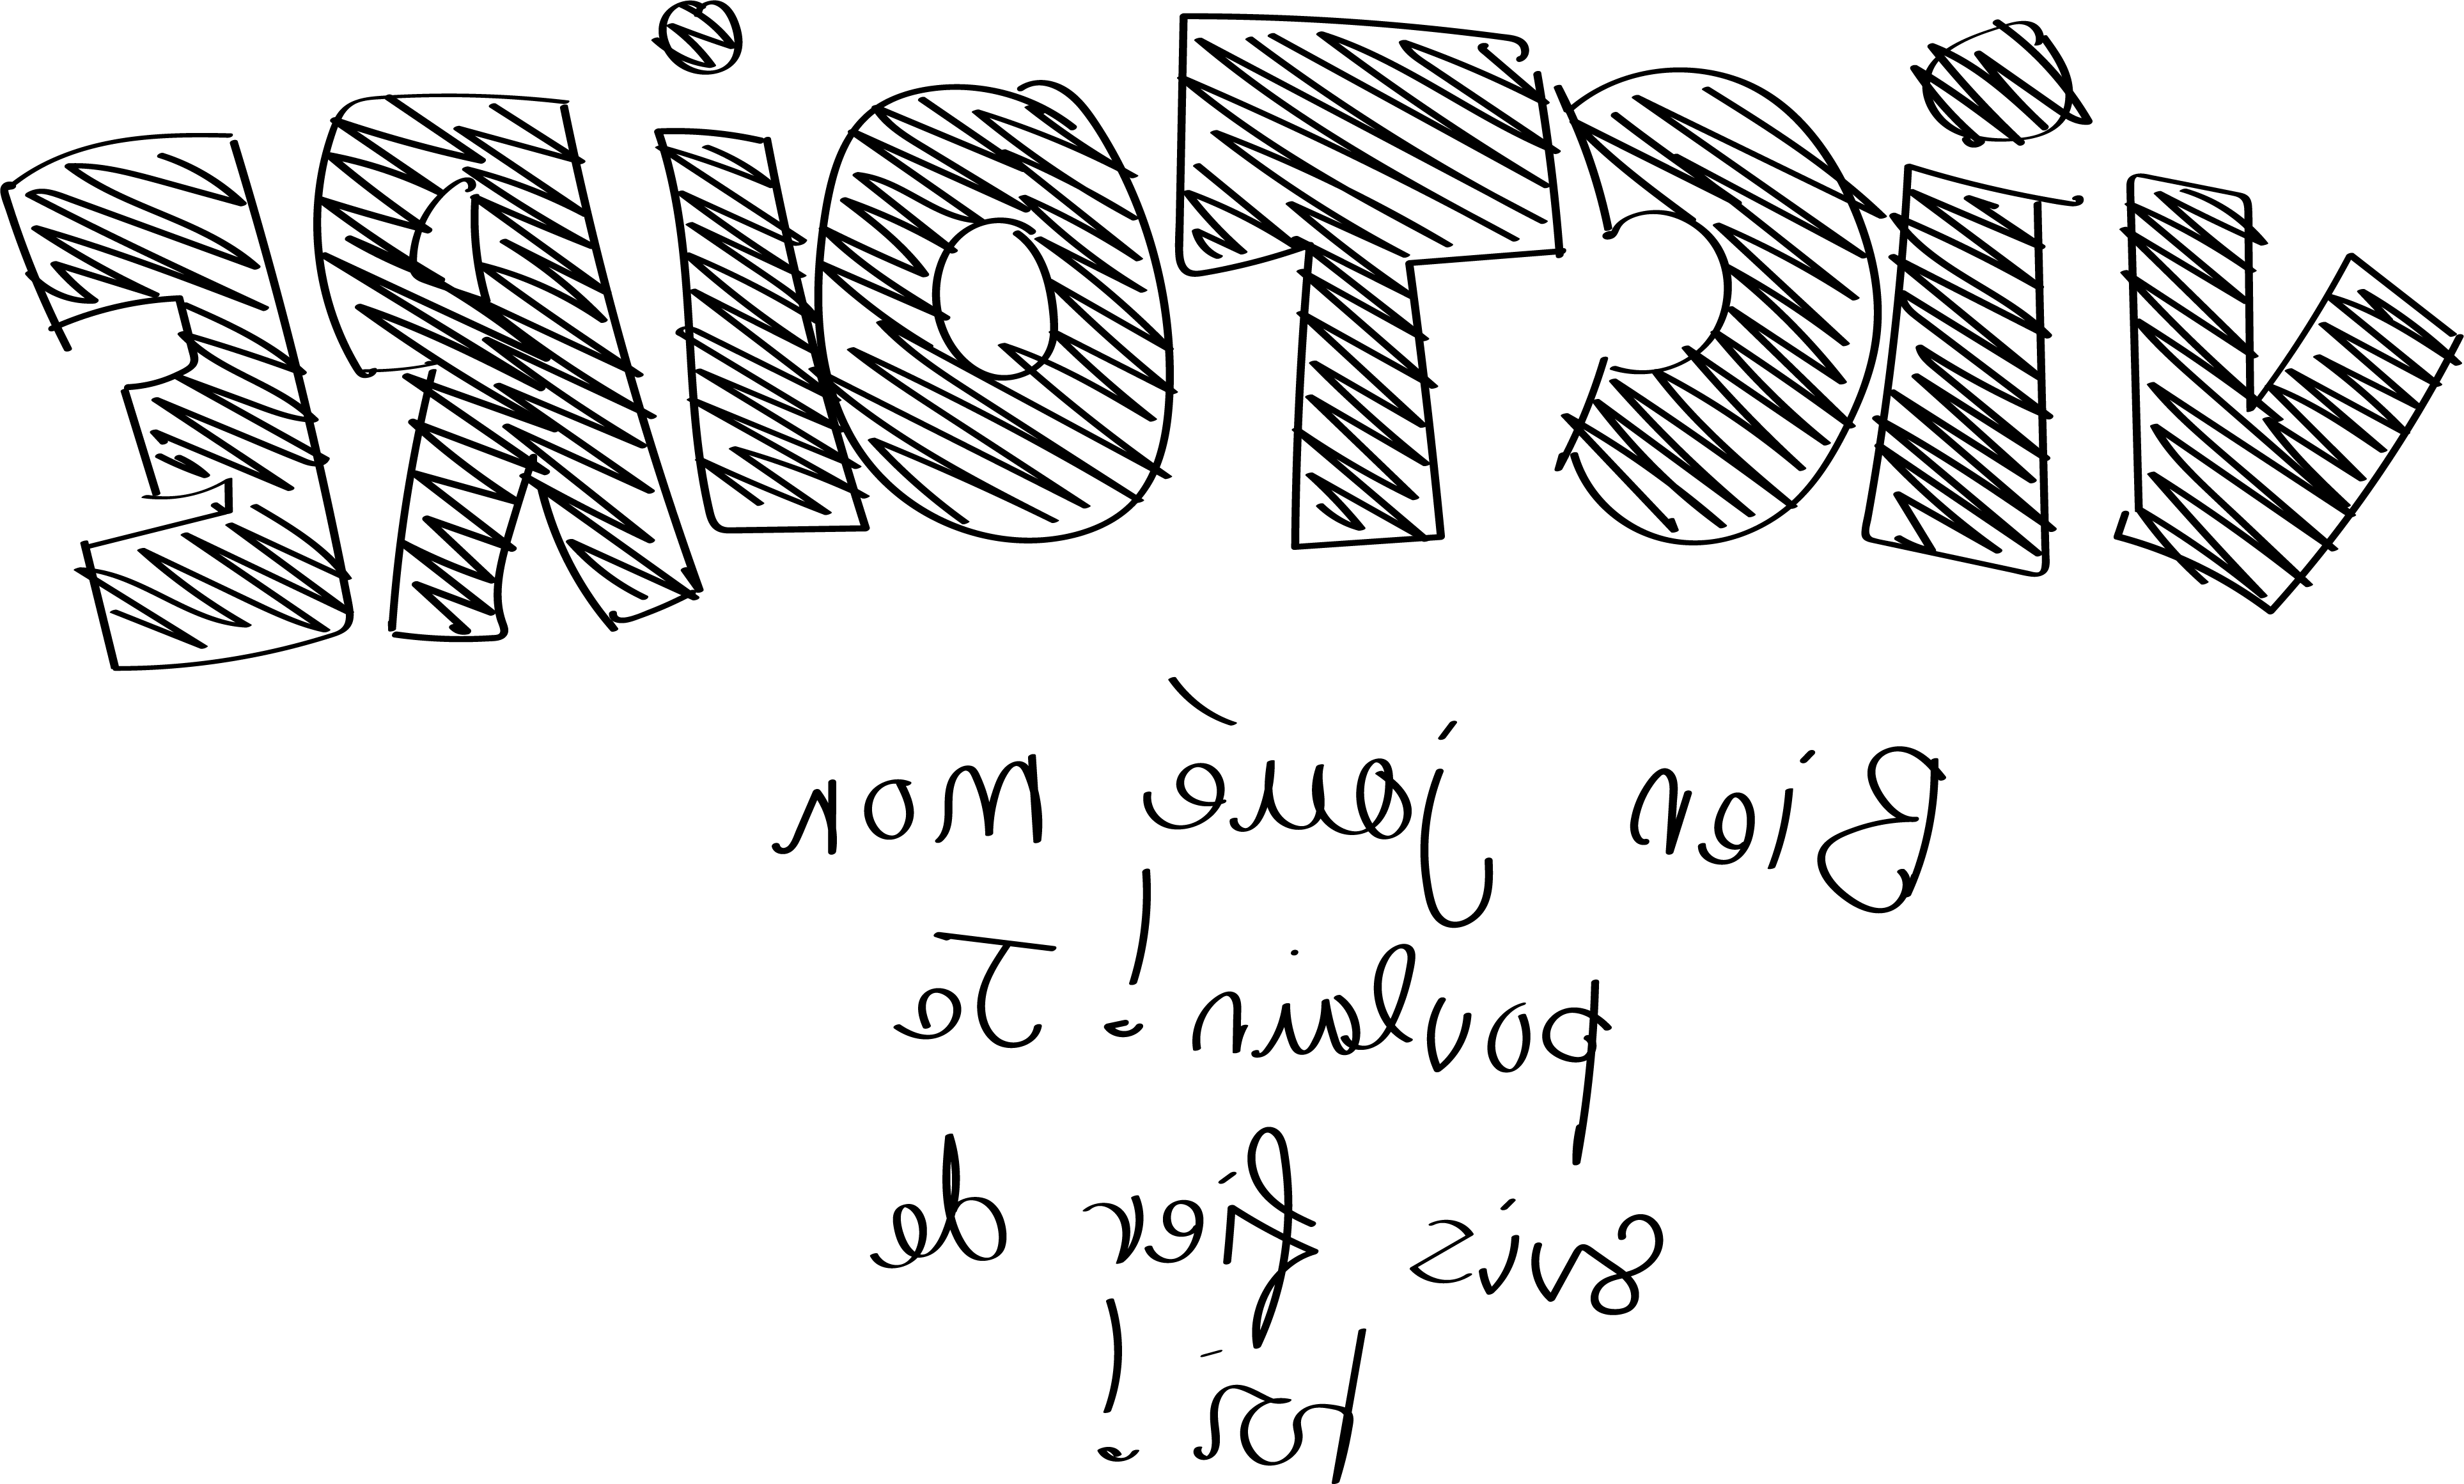 VICTOiRE
Bien joué mon
poulain ! Je
suis fier de
toi !